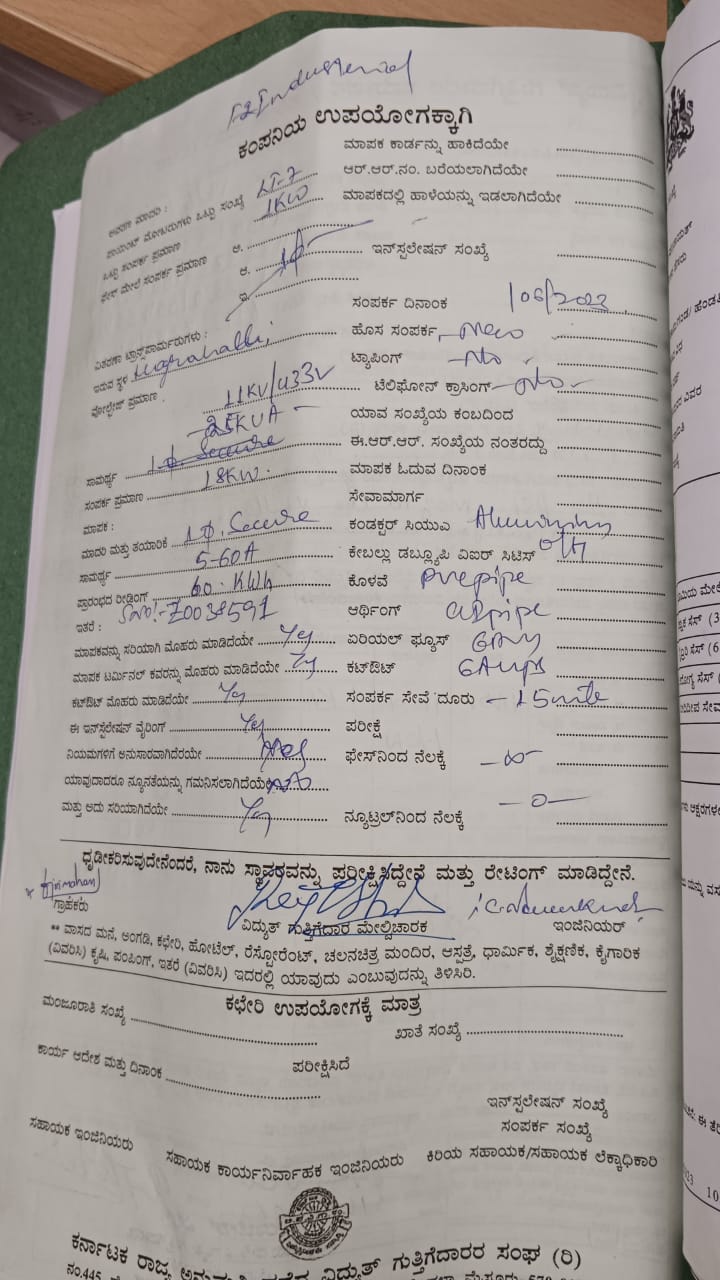 Industerial
ಕಂಪನಿಯ ಉಪಯೋಗಕ್ಕಾಗಿ
ಮಾಪಕ ಕಾರ್ಡನ್ನು ಹಾಕಿದೆಯೇ
ಆರ್.ಆರ್.ನಂ. ಬರೆಯಲಾಗಿದೆಯೇ
LT-7
ಮಾಪಕದಲ್ಲಿ ಹಾಳೆಯನ್ನು ಇಡಲಾಗಿದೆಯೇ
ಪಾಯಿಂಟ್ ಮೋಟರುಗಳು ಒಟ್ಟು ಸಂಖ್ಯೆ 1KW
ಒಟ್ಟು ಸಂಪರ್ಕ ಪ್ರಮಾಣ
ಫೇಸ್ ಮೇಲೆ ಸಂಪರ್ಕ ಪ್ರಮಾಣ ಆ. 1ϕ ಇನ್‌ಸ್ಟಲೇಷನ್ ಸಂಖ್ಯೆ
ಇ.
ಸಂಪರ್ಕ ದಿನಾಂಕ /06/2023
ವಿತರಣಾ ಟ್ರಾನ್ಸ್‌ಫಾರ್ಮರುಗಳು : ಹೊಸ ಸಂಪರ್ಕ, New
ಇರುವ ಸ್ಥಳ ಟ್ಯಾಪಿಂಗ್ - No -
ವೋಲ್ಟೇಜ್ ಪ್ರಮಾಣ . 11KV/433V ಟೆಲಿಫೋನ್ ಕ್ರಾಸಿಂಗ್ - No -
25KVA - ಯಾವ ಸಂಖ್ಯೆಯ ಕಂಬದಿಂದ
ಸಾಮರ್ಥ್ಯ 1ϕ Secure ಈ.ಆರ್.ಆರ್. ಸಂಖ್ಯೆಯ ನಂತರದ್ದು
ಸಂಪರ್ಕ ಪ್ರಮಾಣ 18KW. ಮಾಪಕ ಓದುವ ದಿನಾಂಕ
ಮಾಪಕ : ಸೇವಾಮಾರ್ಗ
ಮಾದರಿ ಮತ್ತು ತಯಾರಿಕೆ 1ϕ. Secure ಕಂಡಕ್ಟರ್ ಸಿಯುಎ
ಸಾಮರ್ಥ್ಯ 5-60A ಕೇಬಲ್ಲು ಡಬ್ಲ್ಯೂಪಿ ವಿಐರ್ ಸಿಟಿಸ್
ಪ್ರಾರಂಭದ ರೀಡ್ಡಿಂಗ್ 60. KWh ಕೊಳವೆ pvcpipe
ಇತರೆ : Sno:- Z0038591 ಆರ್ಥಿಂಗ್ GIpipe
ಮಾಪಕವನ್ನು ಸರಿಯಾಗಿ ಮೊಹರು ಮಾಡಿದೆಯೇ Yes ಏರಿಯಲ್ ಫ್ಯೂಸ್
ಮಾಪಕ ಟರ್ಮಿನಲ್ ಕವರನ್ನು ಮೊಹರು ಮಾಡಿದೆಯೇ Yes ಕಟ್‌ಔಟ್ 6Amps
ಕಟ್‌ಔಟ್ ಮೊಹರು ಮಾಡಿದೆಯೇ Yes ಸಂಪರ್ಕ ಸೇವೆ ದೂರು - 15mte
ಈ ಇನ್‌ಸ್ಟಲೇಷನ್ ವೈರಿಂಗ್ Yes ಪರೀಕ್ಷೆ
ನಿಯಮಗಳಿಗೆ ಅನುಸಾರವಾಗಿದೆರಯೇ Yes ಫೇಸ್‌ನಿಂದ ನೆಲಕ್ಕೆ -∞-
ಯಾವುದಾದರೂ ನ್ಯೂನತೆಯನ್ನು ಗಮನಿಸಲಾಗಿದೆಯೇ No
ಮತ್ತು ಅದು ಸರಿಯಾಗಿದೆಯೇ Yes ನ್ಯೂಟ್ರಲ್‌ನಿಂದ ನೆಲಕ್ಕೆ -0-
ಧೃಡೀಕರಿಸುವುದೇನೆಂದರೆ, ನಾನು ಸ್ಥಾವರವನ್ನು ಪರೀಕ್ಷಿಸಿದ್ದೇನೆ ಮತ್ತು ರೇಟಿಂಗ್ ಮಾಡಿದ್ದೇನೆ.
ಗ್ರಾಹಕರು ವಿದ್ಯುತ್ ಗುತ್ತಿಗೆದಾರ ಮೇಲ್ವಿಚಾರಕ ಇಂಜಿನಿಯರ್
** ವಾಸದ ಮನೆ, ಅಂಗಡಿ, ಕಛೇರಿ, ಹೋಟೆಲ್, ರೆಸ್ಟೋರೆಂಟ್, ಚಲನಚಿತ್ರ ಮಂದಿರ, ಆಸ್ಪತ್ರೆ, ಧಾರ್ಮಿಕ, ಶೈಕ್ಷಣಿಕ, ಕೈಗಾರಿಕ
(ವಿವರಿಸಿ) ಕೃಷಿ, ಪಂಪಿಂಗ್, ಇತರೆ (ವಿವರಿಸಿ) ಇದರಲ್ಲಿ ಯಾವುದು ಎಂಬುವುದನ್ನು ತಿಳಿಸಿರಿ.
ಕಛೇರಿ ಉಪಯೋಗಕ್ಕೆ ಮಾತ್ರ
ಮಂಜೂರಾತಿ ಸಂಖ್ಯೆ ಖಾತೆ ಸಂಖ್ಯೆ
ಕಾರ್ಯ ಆದೇಶ ಮತ್ತು ದಿನಾಂಕ ಪರೀಕ್ಷಿಸಿದೆ
ಇನ್‌ಸ್ಟಲೇಷನ್ ಸಂಖ್ಯೆ
ಸಂಪರ್ಕ ಸಂಖ್ಯೆ
ಸಹಾಯಕ ಇಂಜಿನಿಯರು ಸಹಾಯಕ ಕಾರ್ಯನಿರ್ವಾಹಕ ಇಂಜಿನಿಯರು ಕಿರಿಯ ಸಹಾಯಕ/ಸಹಾಯಕ ಲೆಕ್ಕಾಧಿಕಾರಿ
ಕರ್ನಾಟಕ ರಾಜ್ಯ ವಿದ್ಯುತ್ ಗುತ್ತಿಗೆದಾರರ ಸಂಘ (ರಿ)
ನಂ.445,